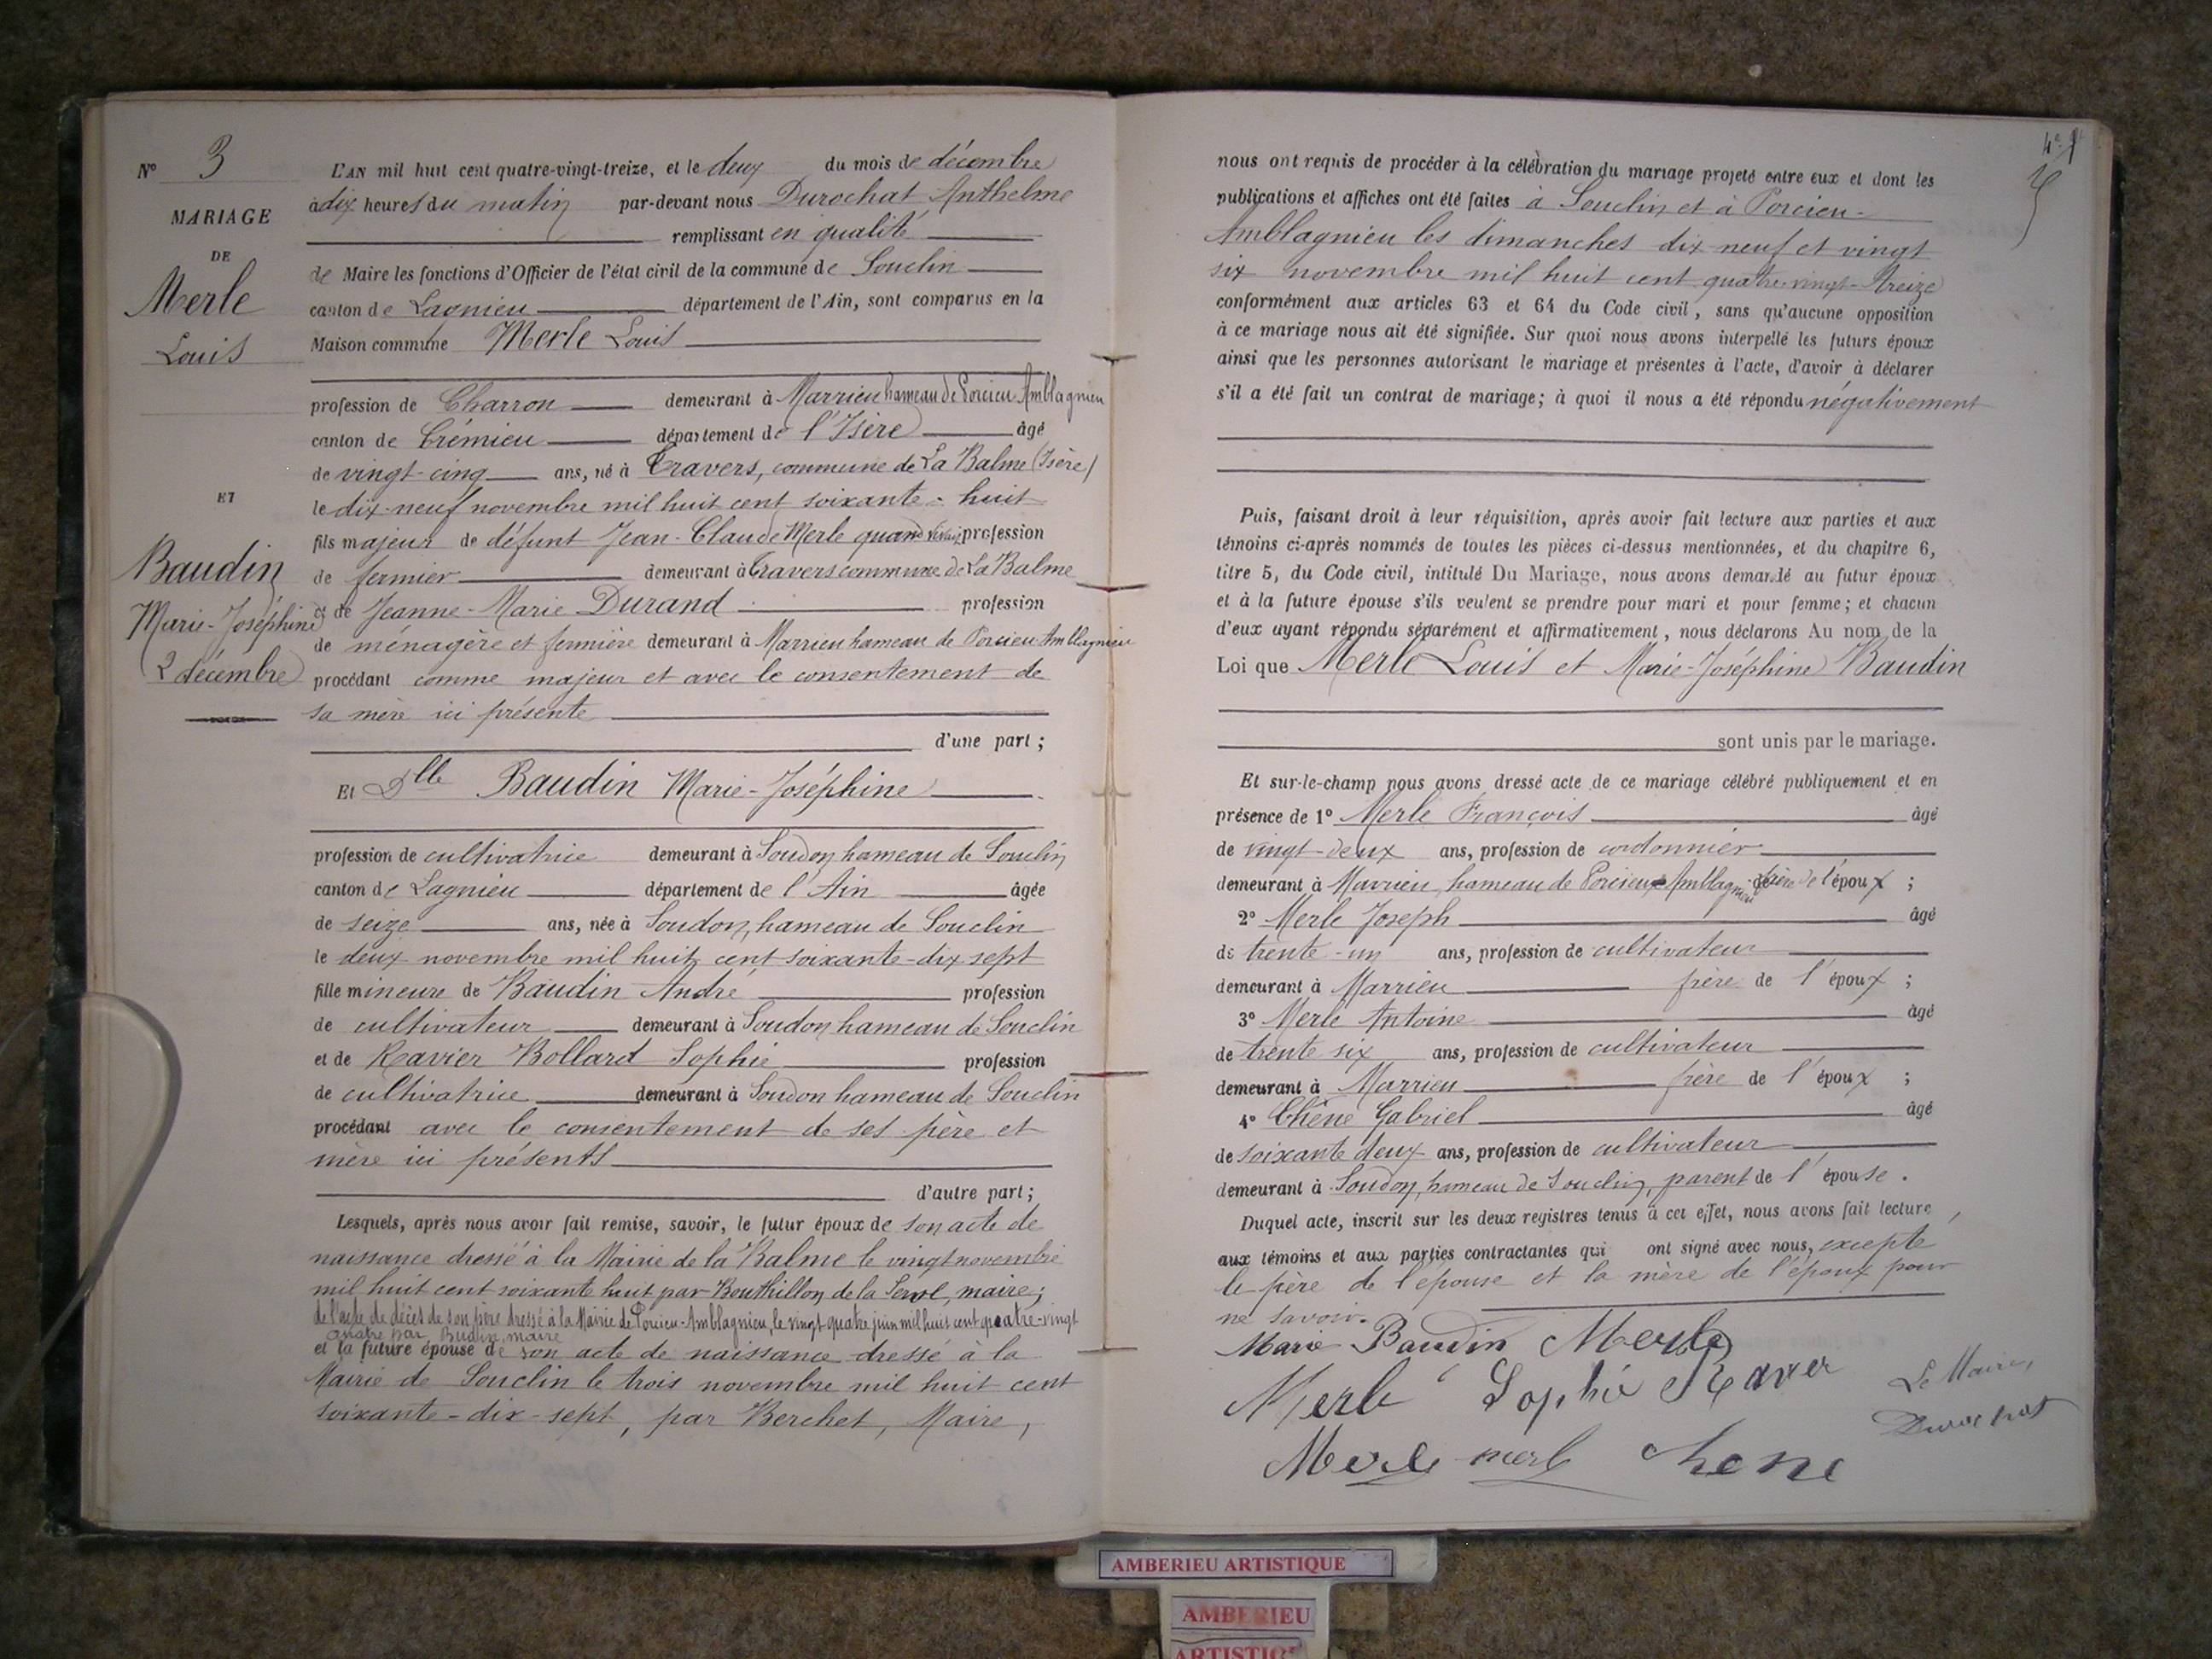 N° 3
MARIAGE
DE
Merle
Louis
ET
Baudin
Marie-Joséphine
2 décembre
L'AN mil huit cent quatre-vingt-treize, et le deux du mois de décembre
à dix heures du matin par-devant nous Durochat Anthelme
remplissant en qualité
de Maire les fonctions d'Officier de l'état civil de la commune de Souclin
canton de Lagnieu département de l'Ain, sont comparus en la
Maison commune Merle Louis
profession de Charron demeurant à Marrieu hameau de Porcieu-Amblagnieu
canton de Crémieu département de l'Isère âgé
de vingt-cinq ans, né à Travers, commune de La Balme (Isère)
le dix-neuf novembre mil huit cent soixante-huit
fils majeur de défunt Jean-Claude Merle quand vivait profession
de fermier demeurant à Travers commune de La Balme
et de Jeanne-Marie Durand profession
de ménagère et fermière demeurant à Marrieu hameau de Porcieu Amblagnieu
procédant comme majeur et avec le consentement de
sa mère ici présente
d'une part ;
Et Dlle Baudin Marie-Joséphine
profession de cultivatrice demeurant à Soudon hameau de Souclin
canton de Lagnieu département de l'Ain âgée
de seize ans, née à Soudon, hameau de Souclin
le deux novembre mil huit cent soixante-dix sept
fille mineure de Baudin André profession
de cultivateur demeurant à Soudon hameau de Souclin
et de Ravier Bollard Sophie profession
de cultivatrice demeurant à Soudon hameau de Souclin
procédant avec le consentement de ses père et
mère ici présents
d'autre part ;
Lesquels, après nous avoir fait remise, savoir, le futur époux de son acte de
naissance dressé à la Mairie de la Balme le vingt novembre
mil huit cent soixante huit par Bouthillon de la Servel, maire ;
de l'acte de décès de son père dressé à la Mairie de Porcieu-Amblagnieu, le vingt quatre juin mil huit cent quatre-vingt
quatre par Budin, maire
et la future épouse de son acte de naissance dressé à la
Mairie de Souclin le trois novembre mil huit cent
soixante-dix-sept, par Berchet, Maire,
nous ont requis de procéder à la célébration du mariage projeté entre eux et dont les
publications et affiches ont été faites à Souclin et à Porcieu-
Amblagnieu les dimanches dix-neuf et vingt
six novembre mil huit cent quatre-vingt-treize
conformément aux articles 63 et 64 du Code civil, sans qu'aucune opposition
à ce mariage nous ait été signifiée. Sur quoi nous avons interpellé les futurs époux
ainsi que les personnes autorisant le mariage et présentes à l'acte, d'avoir à déclarer
s'il a été fait un contrat de mariage ; à quoi il nous a été répondu négativement
Puis, faisant droit à leur réquisition, après avoir fait lecture aux parties et aux
témoins ci-après nommés de toutes les pièces ci-dessus mentionnées, et du chapitre 6,
titre 5, du Code civil, intitulé Du Mariage, nous avons demandé au futur époux
et à la future épouse s'ils veulent se prendre pour mari et pour femme ; et chacun
d'eux ayant répondu séparément et affirmativement, nous déclarons Au nom de la
Loi que Merle Louis et Marie-Joséphine Baudin
sont unis par le mariage.
Et sur-le-champ nous avons dressé acte de ce mariage célébré publiquement et en
présence de 1° Merle François âgé
de vingt-deux ans, profession de cordonnier
demeurant à Marrieu, hameau de Porcieu Amblagnieu frère de l'époux ;
2° Merle Joseph âgé
de trente-un ans, profession de cultivateur
demeurant à Marrieu frère de l'époux ;
3° Merle Antoine âgé
de trente six ans, profession de cultivateur
demeurant à Marrieu frère de l'époux ;
4° Chêne Gabriel âgé
de soixante deux ans, profession de cultivateur
demeurant à Soudon, hameau de Souclin, parent de l'épouse.
Duquel acte, inscrit sur les deux registres tenus à cet effet, nous avons fait lecture
aux témoins et aux parties contractantes qui ont signé avec nous, excepté
le père de l'épouse et la mère de l'époux pour
ne savoir.
Marie Baudin Merle
Merle Sophie Ravier
Le Maire,
Durochat
Merle merle chene
AMBERIEU ARTISTIQUE
AMBERIEU
ARTISTIQUE